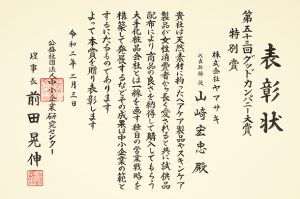 表彰状
第五十三回グッドカンパニー大賞
特別賞
株式会社ヤマサキ
代表取締役 山﨑宏忠殿
貴社は天然素材に拘ったヘアケア製品やスキンケア
製品が女性消費者から長く愛されると共に試供品
配布により商品の良さを納得して購入してもらう
大手化粧品会社とは一線を画す独自の営業戦略を
構築して発展するなどその成果は中小企業の範と
するにたるものであります
よって本賞を贈り表彰します
令和二年二月三日
公益社団法人中小企業研究センター
理事長 前田晃伸